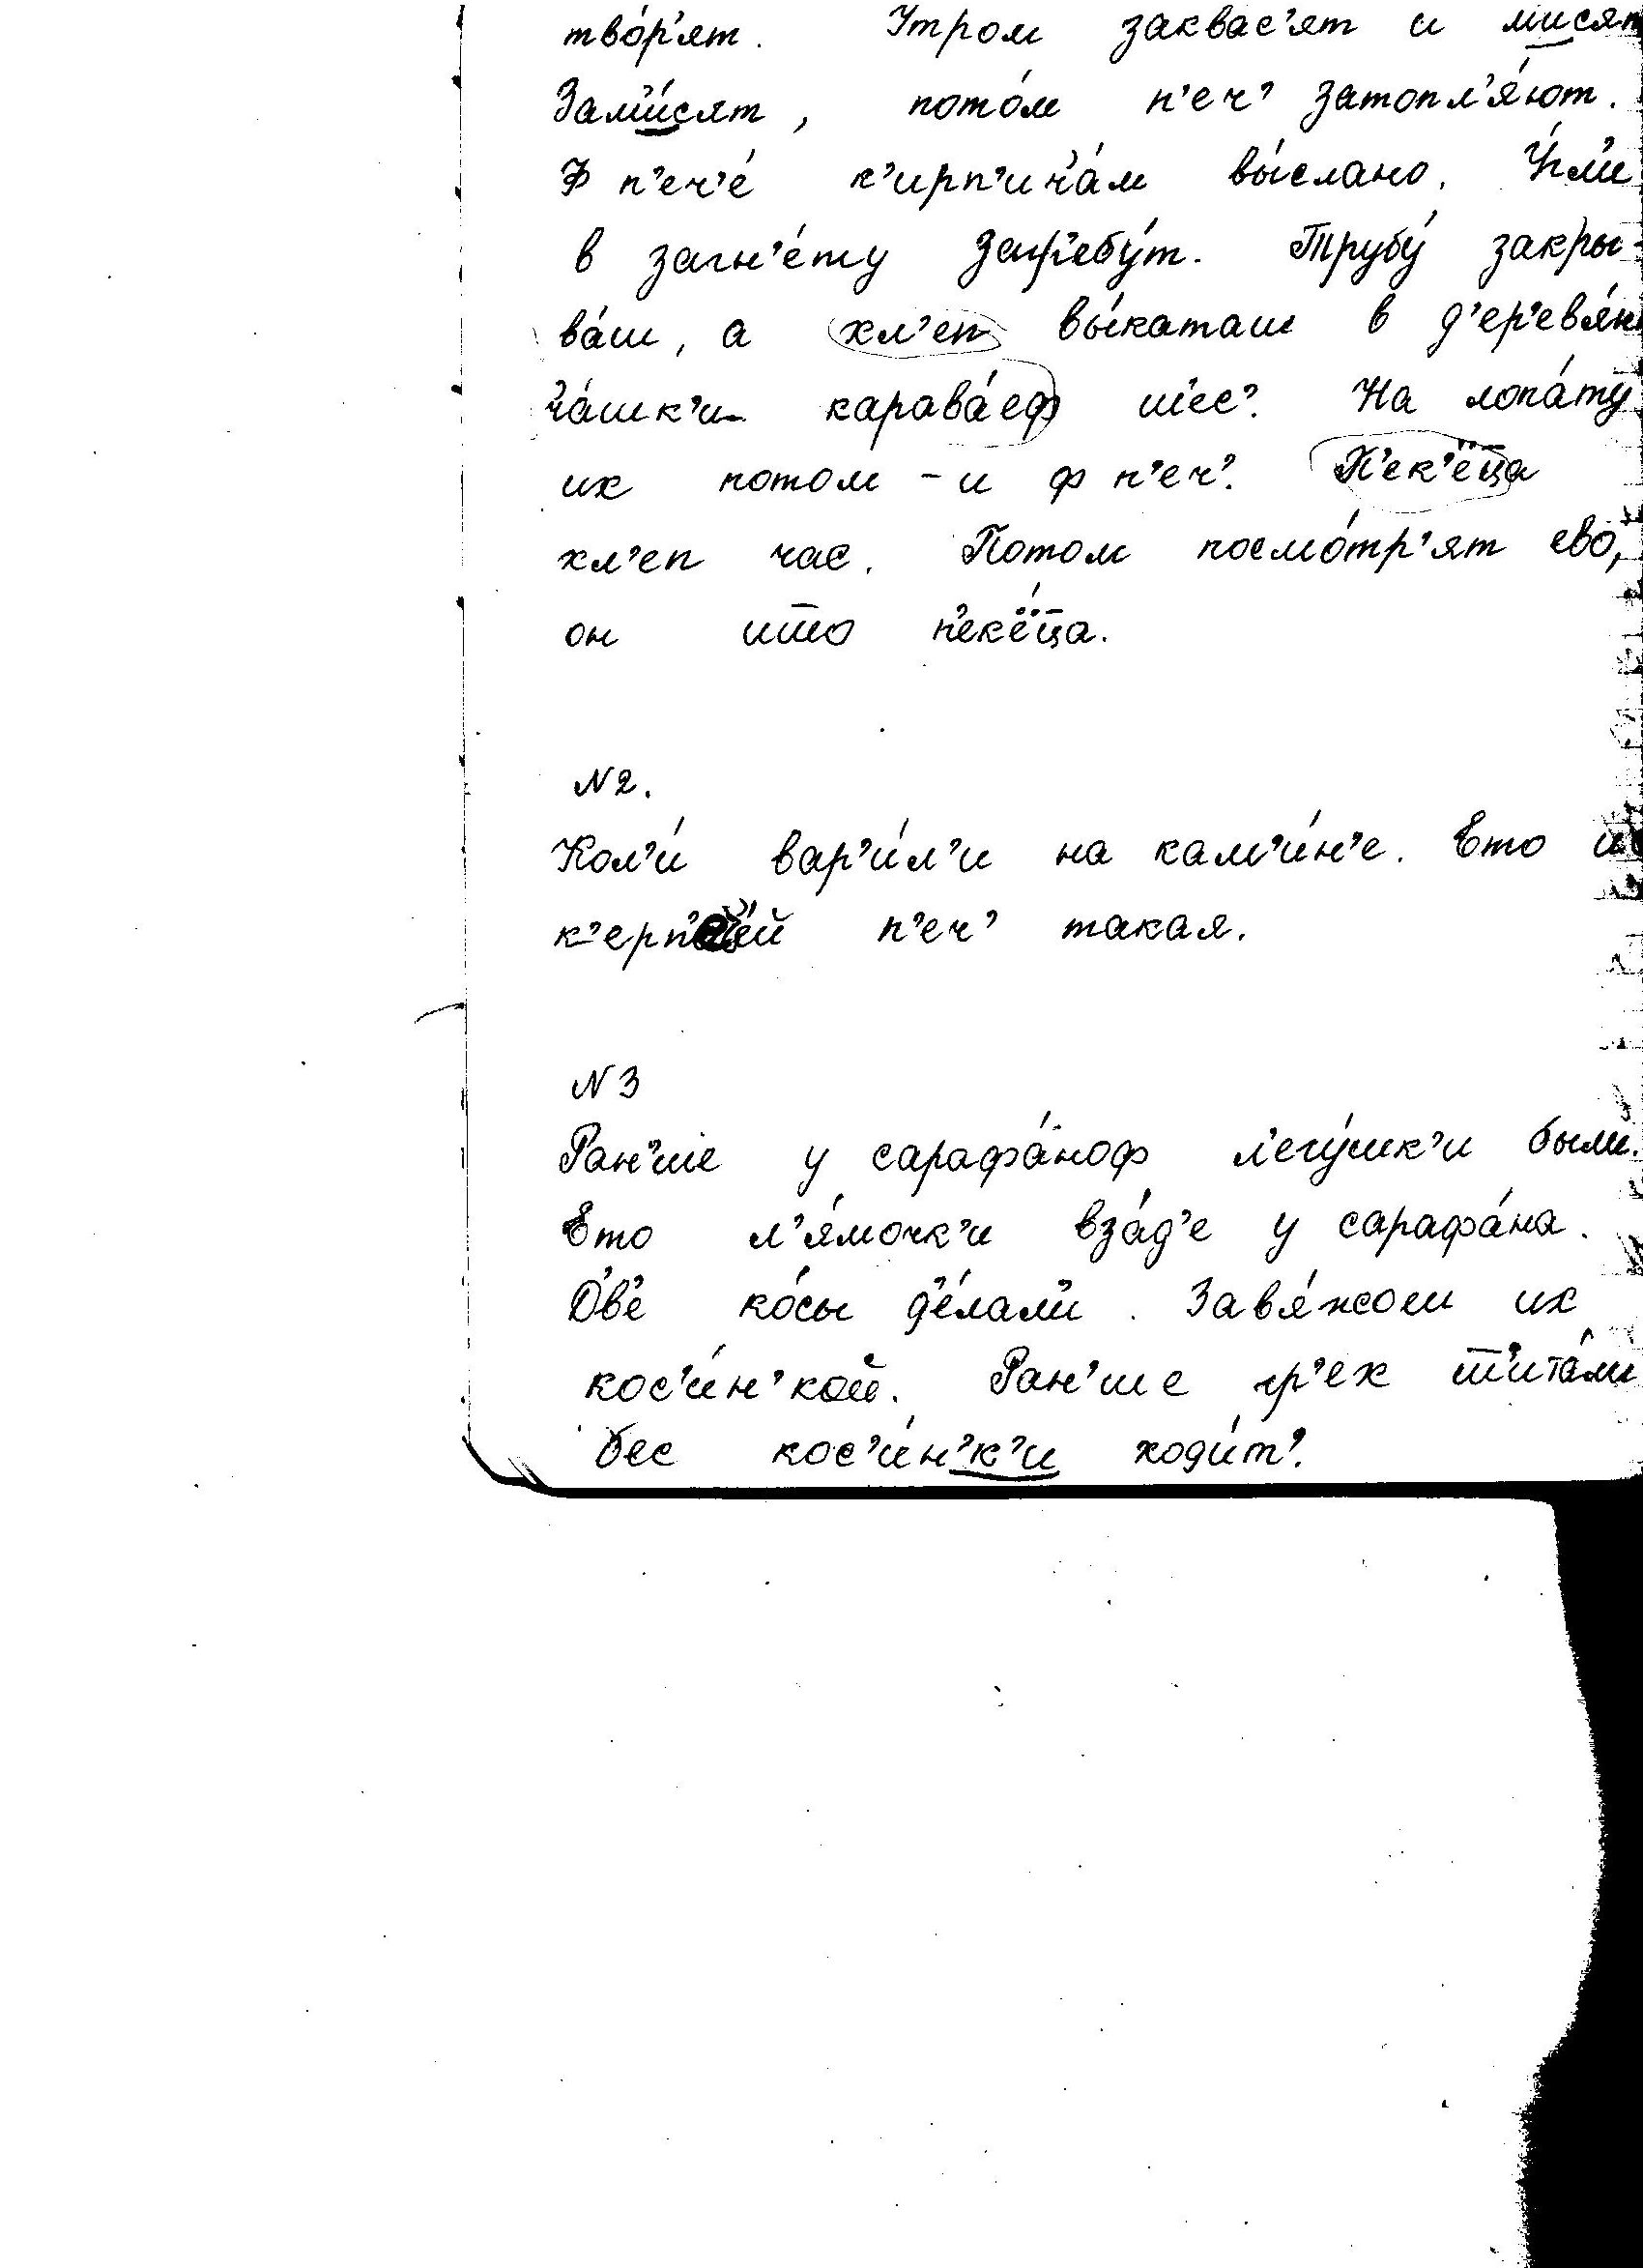 тво́р'ят. Утром заквас'ят и мисят
Зам'и́сят, пото́м п'еч' затопл'я́ют.
Ф п'еч'е́ к'ирп'ич'а́м вы́слано. У́гл'и
в загн'е́ту загр'ебу́т. Трубу́ закры-
ва́ш, а хл'еп вы́каташ в д'ер'евя́н
ча́шк'и карава́еф шес'. На лопа́ту
их потом - и ф п'еч'. П'ек'ё̄ца
хл'еп час. Потом посмо́тр'ят ево́,
он што п'екё̄ца.
N2.
Кол'и́ вар'и́л'и на кам'и́н'е. Ето
п'еч' такая.
N3
Ран'ше у сарафа́ноф л'егу́шк'и были.
Ето л'я́мочк'и вза́д'е у сарафа́на.
Дв'е ко́сы д'е́лал'и. Завя́жош их
кос'и́н'кой. Ран'ше гр'ех ш̄'ита́ли
бес кос'и́н'к'и ходи́т'.